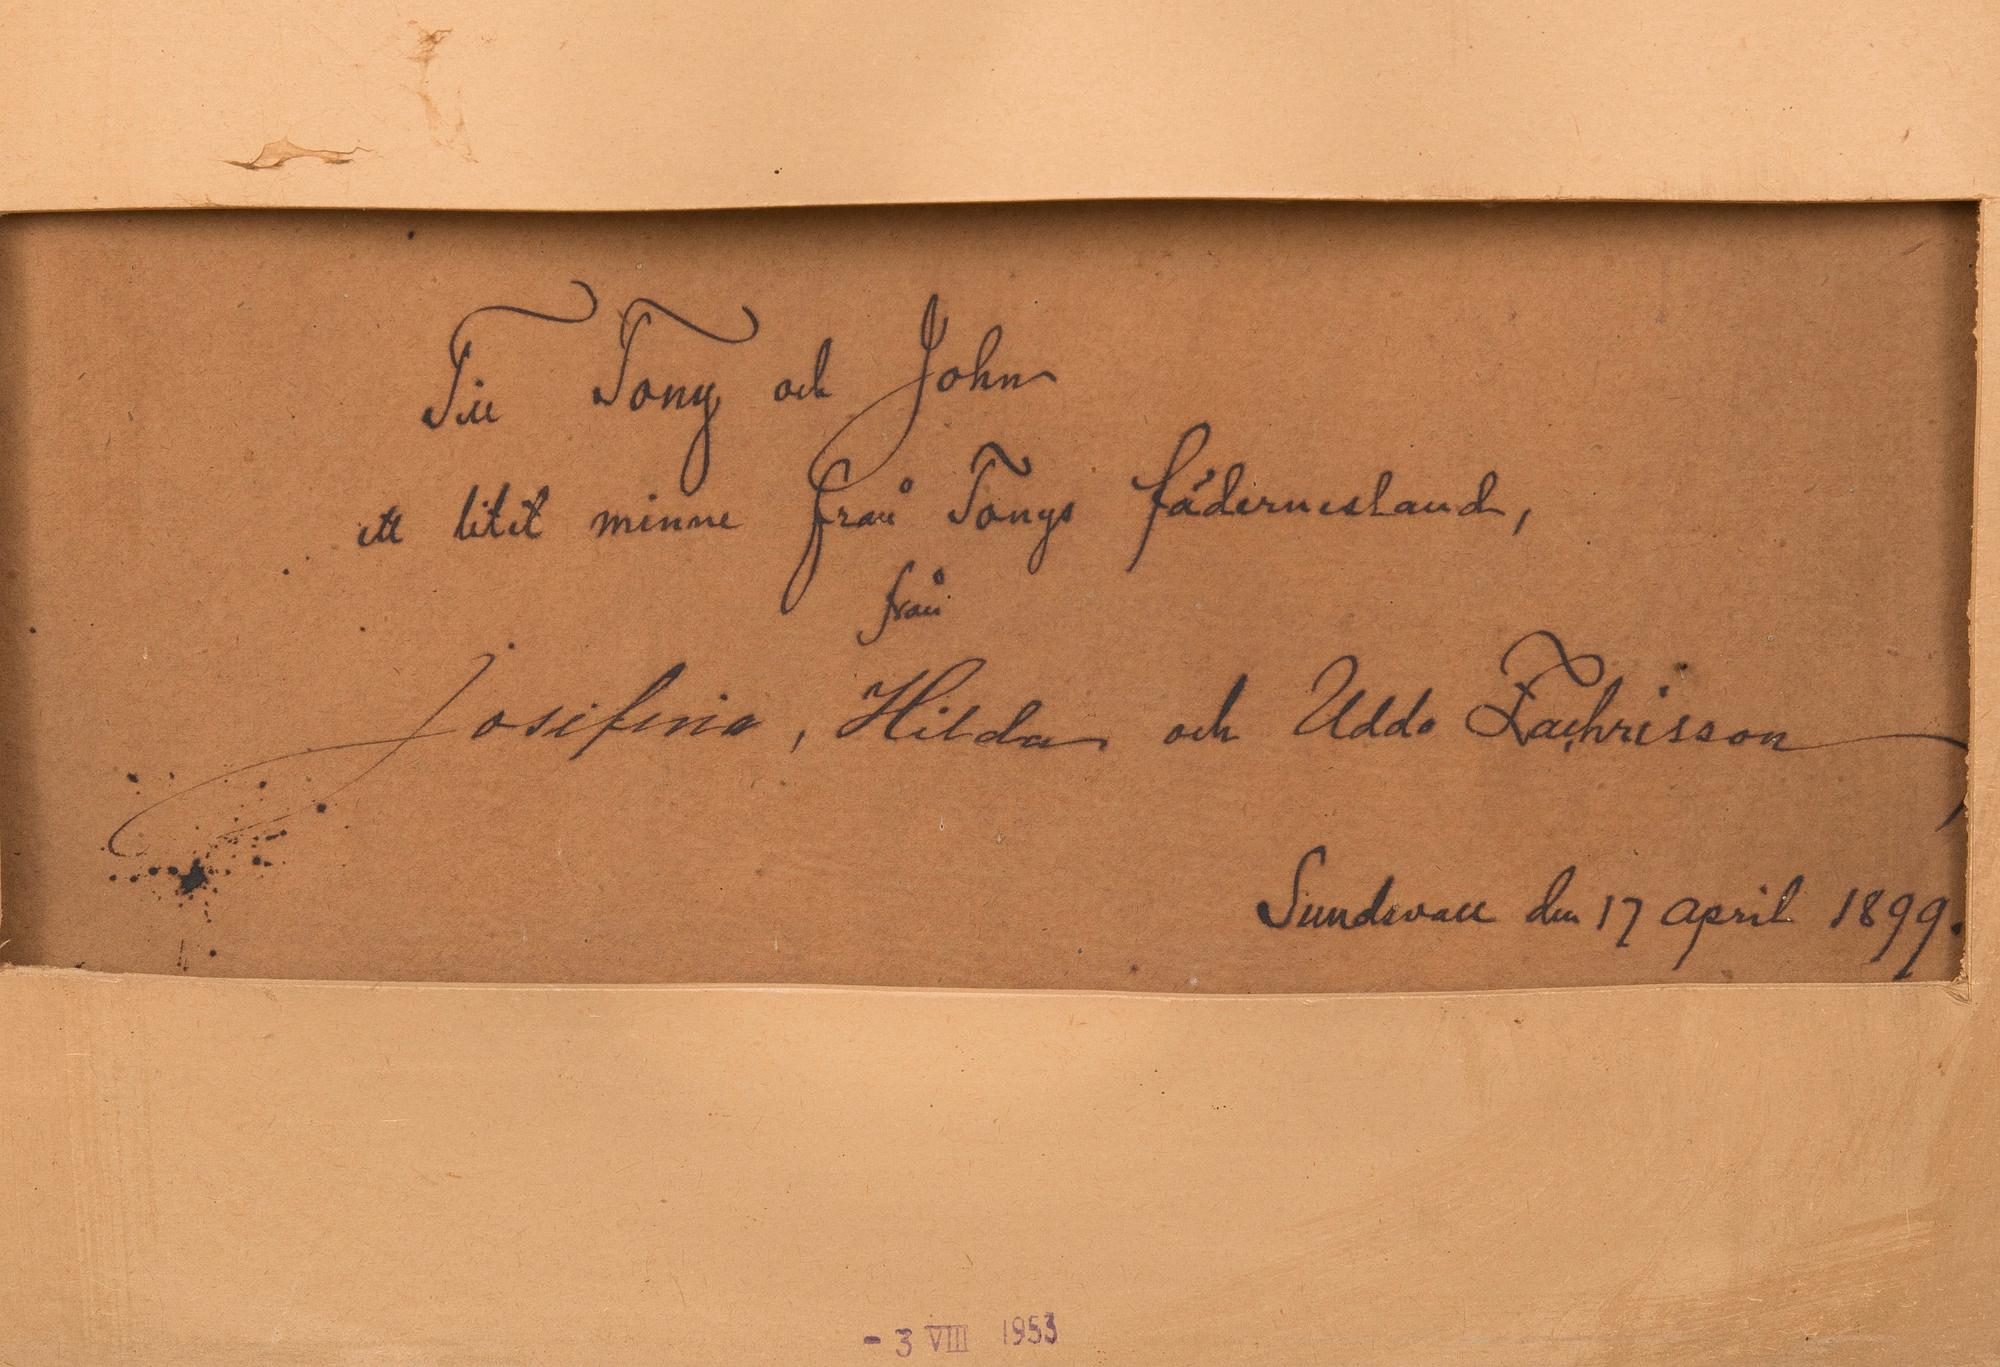 Till Tony och John
ett litet minne från Tonys fädernesland,
från
Josefina, Hilda och Uddo Zachrisson
Sundsvall den 17 april 1899.
- 3 VIII 1953